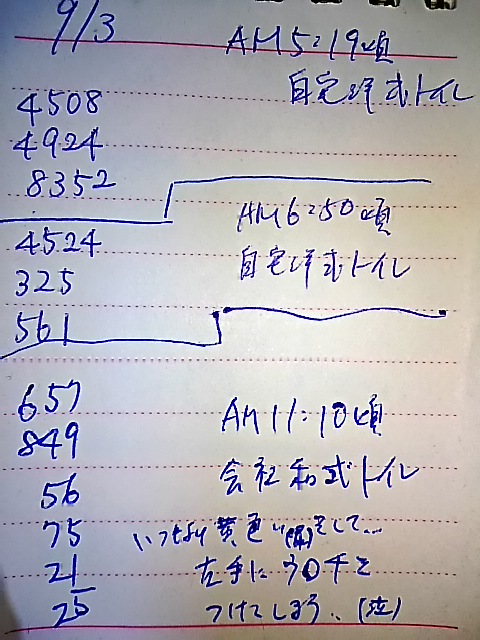 9/3
AM5:19頃
自宅洋式トイレ
4508
4924
8352
AM6:50頃
自宅洋式トイレ
4524
325
561
657
849
56
75
21
25
AM11:10頃
会社和式トイレ
いつもより黄色い をして...
左手に
つけてしまう、(泣)